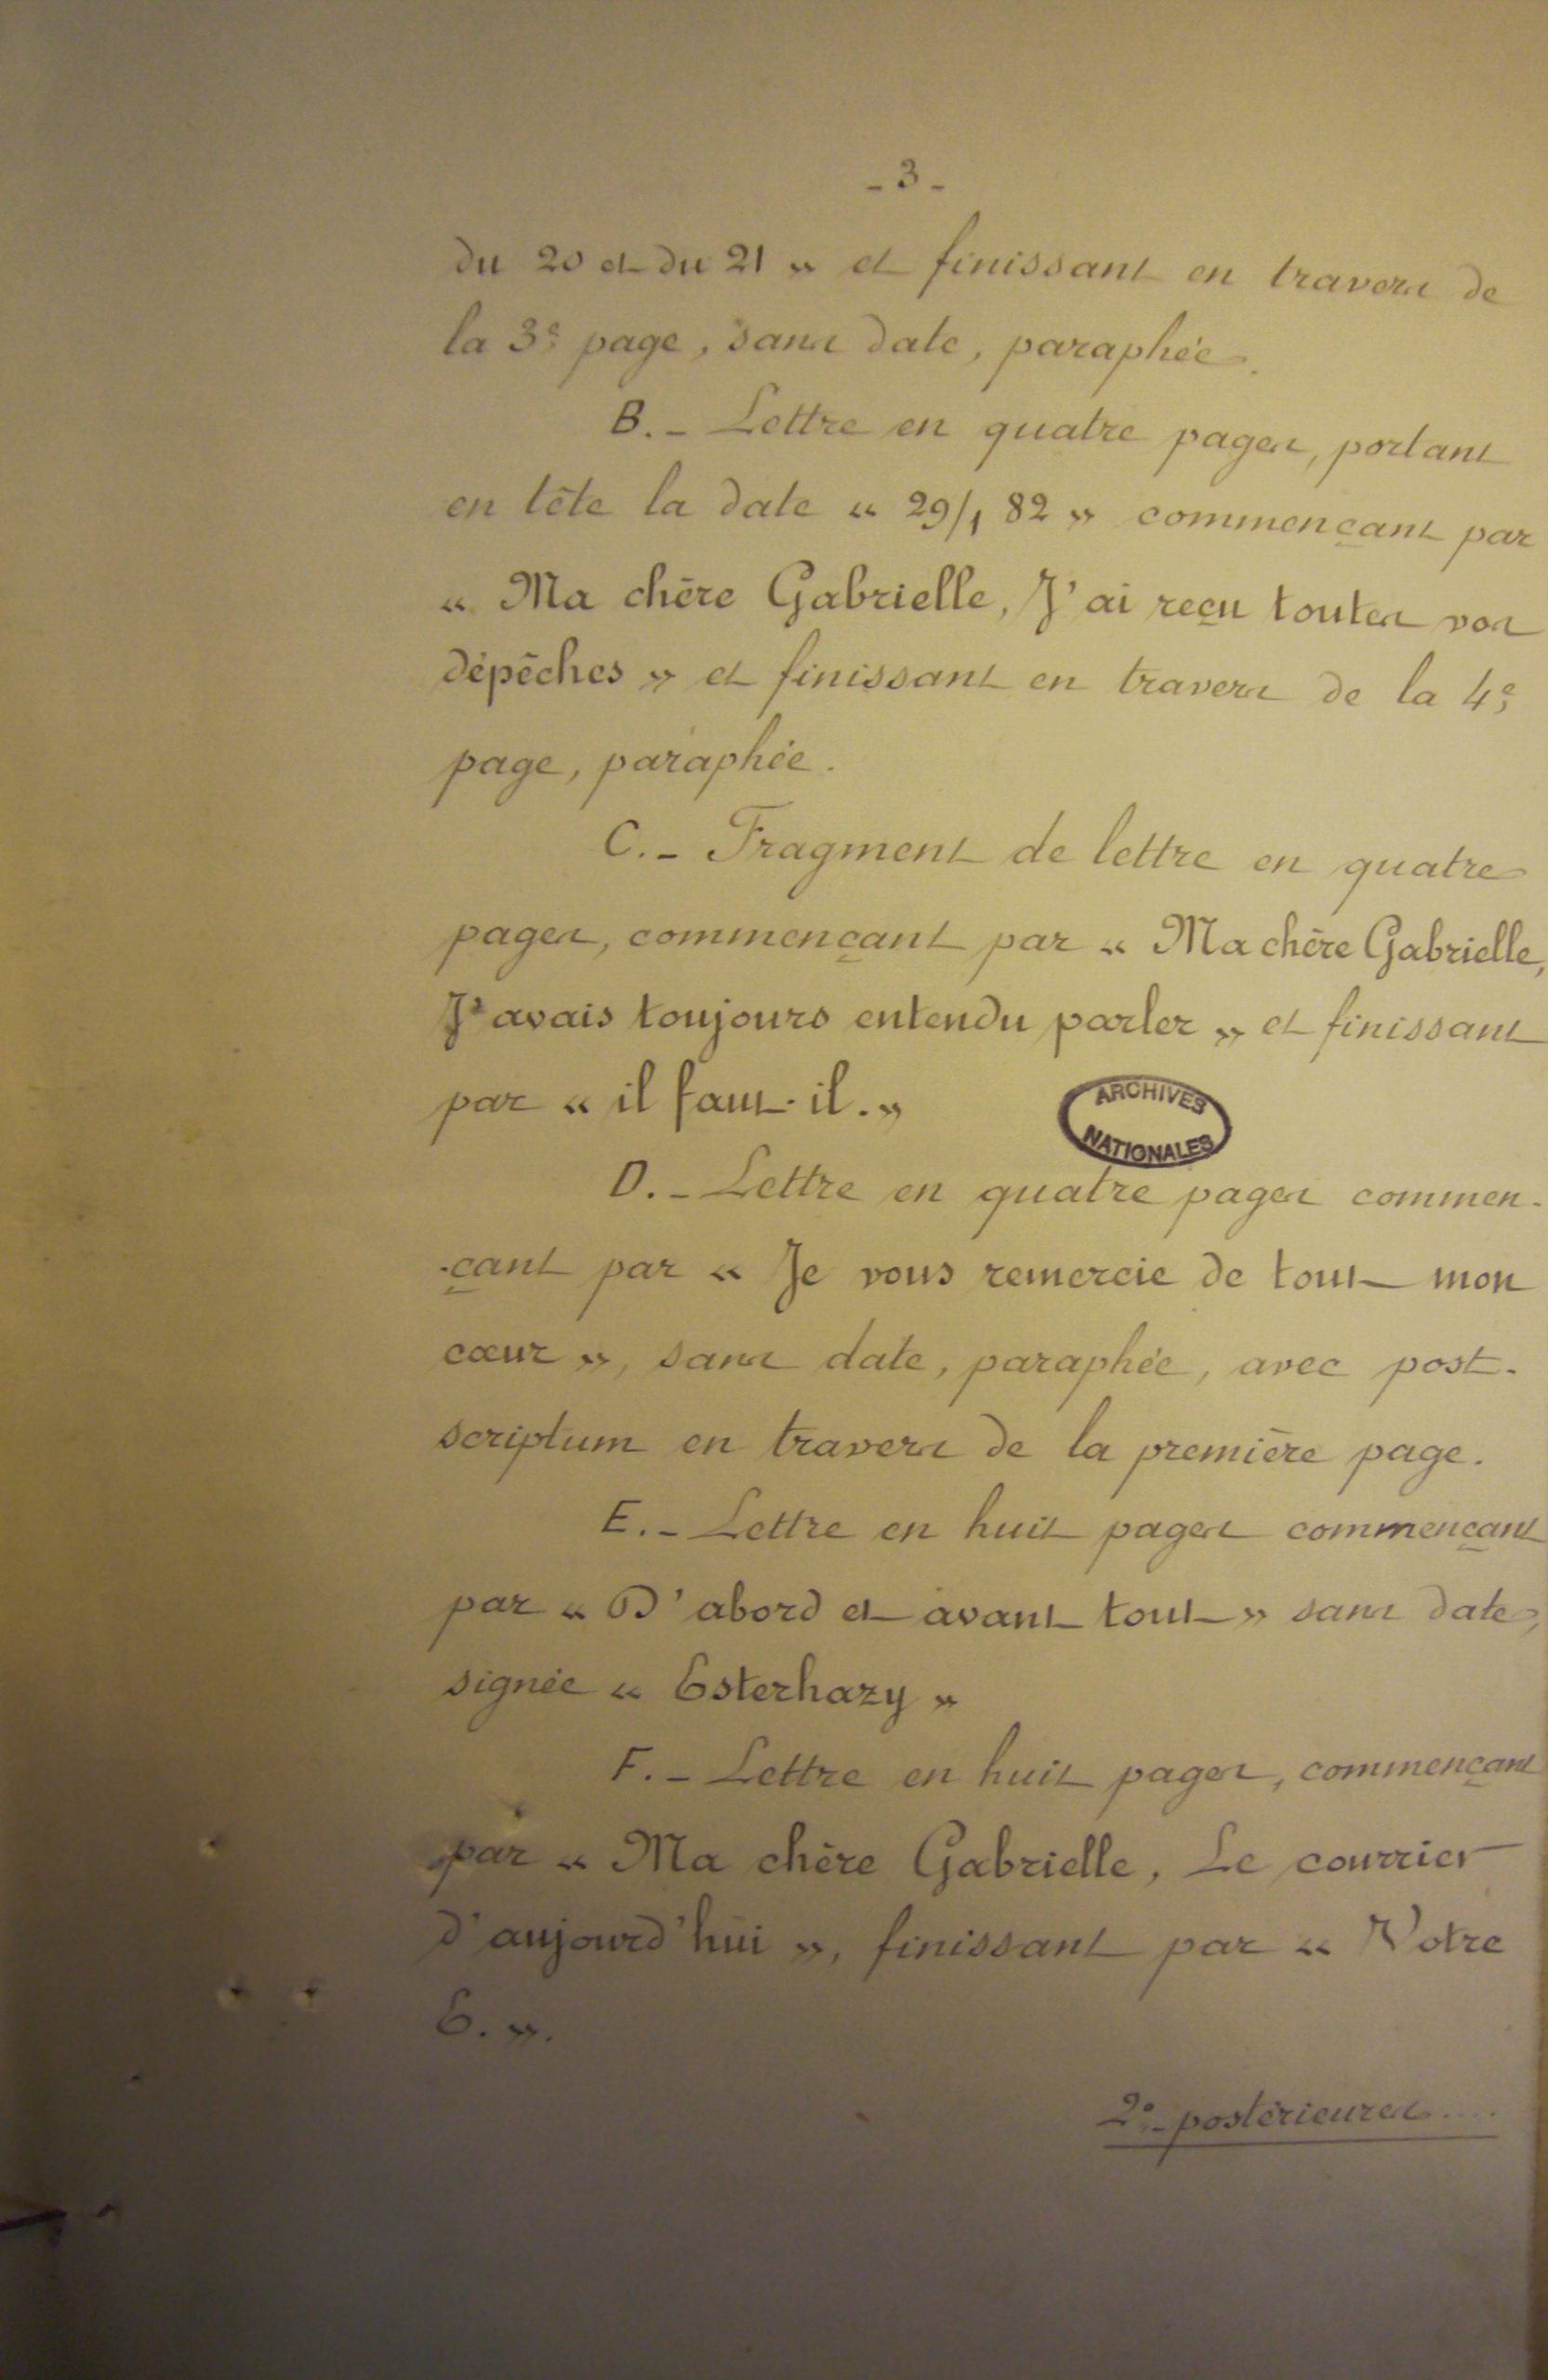 - 3 -
du 20 et du 21 » et finissant en travers de
la 3e page, sans date, paraphée.
B. - Lettre en quatre pages, portant
en tête la date « 29/1 82 » commençant par
« Ma chère Gabrielle, J'ai reçu toutes vos
dépêches » et finissant en travers de la 4e
page, paraphée.
C. - Fragment de lettre en quatre
pages, commençant par « Ma chère Gabrielle,
J'avais toujours entendu parler » et finissant
par « il faut-il. »
ARCHIVES
NATIONALES
D. - Lettre en quatre pages commen-
-çant par « Je vous remercie de tout mon
cœur », sans date, paraphée, avec post-
scriptum en travers de la première page.
E. - Lettre en huit pages commençant
par « D'abord et avant tout » sans date,
signée « Esterhazy »
F. - Lettre en huit pages, commençant
par « Ma chère Gabrielle, Le courrier
d'aujourd'hui », finissant par « Votre
E. ».
2° - postérieures ....